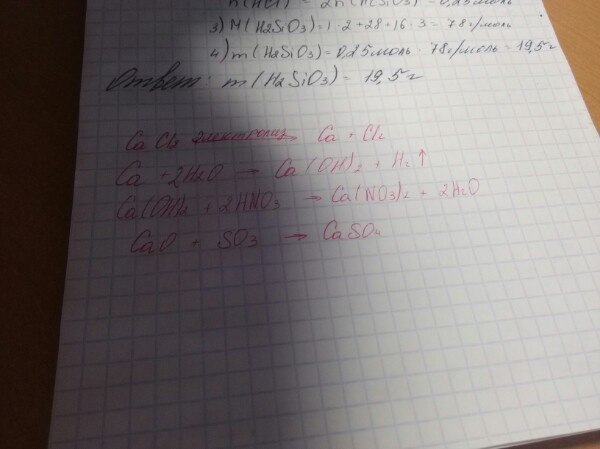 n(HCl) = 2n(H2SiO3) = 0,25 моль
3) M(H2SiO3) = 1·2+28+16·3 = 78 г/моль
4) m(H2SiO3) = 0,25 моль · 78 г/моль = 19,5 г
Ответ: m(H2SiO3) = 19,5 г
CaCl2 электролиз→ Ca + Cl2
Ca + 2H2O → Ca(OH)2 + H2↑
Ca(OH)2 + 2HNO3 → Ca(NO3)2 + 2H2O
CaO + SO3 → CaSO4